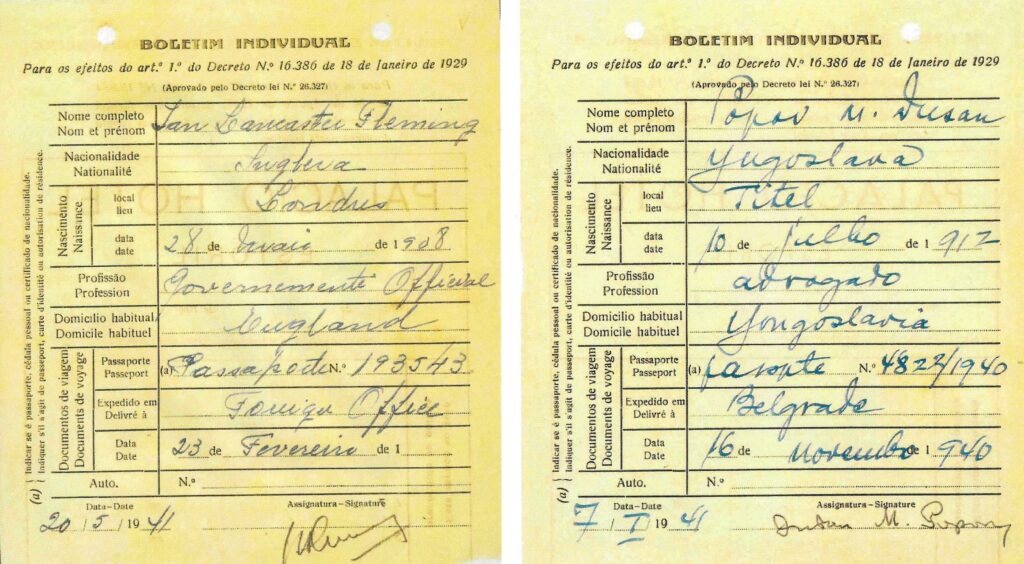 BOLETIM INDIVIDUAL
Para os efeitos do art.º 1.º do Decreto N.º 16.386 de 18 de Janeiro de 1929
(Aprovado pelo Decreto lei N.º 26.327)
Nome completo
Nom et prénom
Ian Lancaster Fleming
Nacionalidade
Nationalité
Inglesa
Nascimento
Naissance
local
lieu
Londres
data
date
28 de Maio de 1908
Profissão
Profession
Governemente Official
Domicilio habitual
Domicile habituel
England
Documentos de viagem
Documents de voyage
Passaporte
Passeport
(a) Passaporte N.º 193543
Expedido em
Delivré à
Foreign Office
Data
Date
23 de Fevereiro de 1
Auto.
N.º
Data-Date
20/5/1941
Assignatura-Signature
(a) Indicar se é passaporte, cédula pessoal ou certificado de nacionalidade.
Indiquer s'il s'agit de passeport, carte d'identité ou autorisation de résidence.
PALACIO HO
BOLETIM INDIVIDUAL
Para os efeitos do art.º 1.º do Decreto N.º 16.386 de 18 de Janeiro de 1929
(Aprovado pelo Decreto lei N.º 26.327)
Nome completo
Nom et prénom
Popov M. Dusan
Nacionalidade
Nationalité
Yugoslava
Nascimento
Naissance
local
lieu
Titel
data
date
10 de julho de 1912
Profissão
Profession
advogado
Domicilio habitual
Domicile habituel
Yougoslavia
Documentos de viagem
Documents de voyage
Passaporte
Passeport
(a) N.º 4822/1940
Expedido em
Delivré à
Belgrade
Data
Date
16 de novembro de 1940
Auto.
N.º
Data-Date
7/I/1941
Assignatura-Signature
Dusan M. Popov
(a) Indicar se é passaporte, cédula pessoal ou certificado de nacionalidade.
Indiquer s'il s'agit de passeport, carte d'identité ou autorisation de résidence.